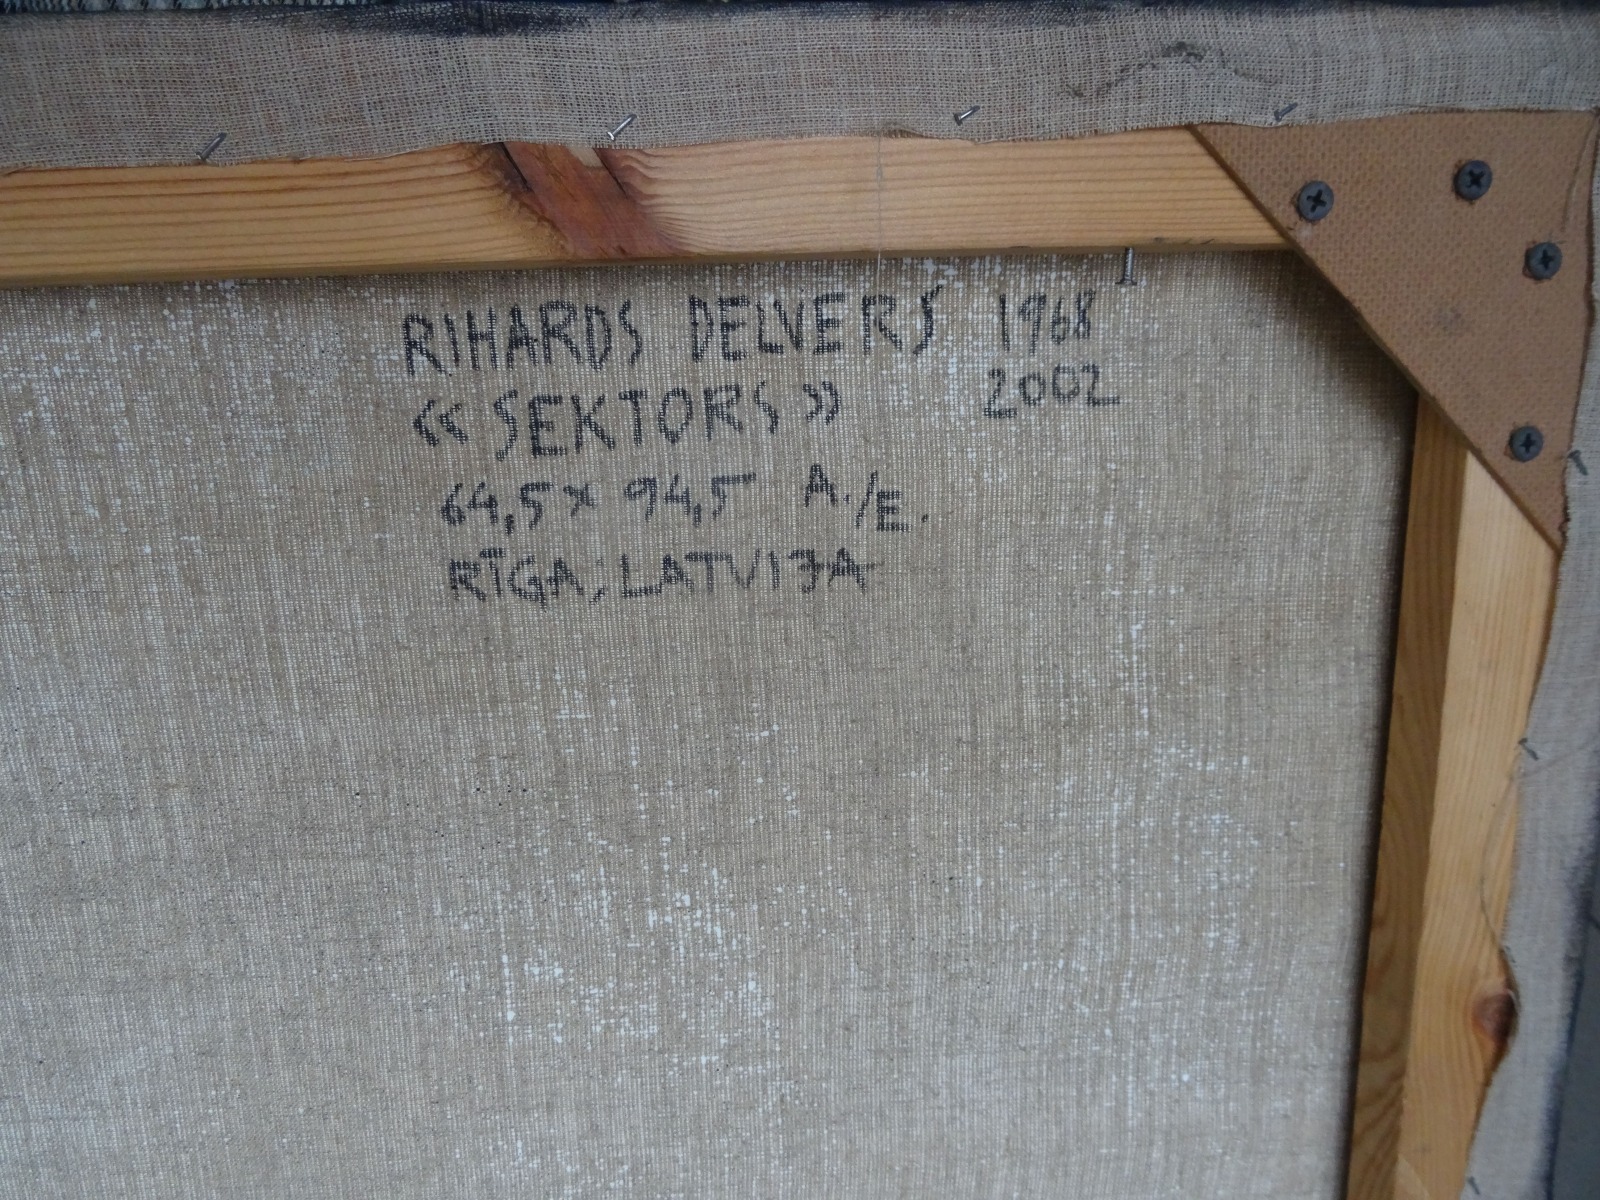 RIHARDS DELVERS 1968
« SEKTORS » 2002
64,5 x 94,5 A./E.
RĪGA, LATVIJA